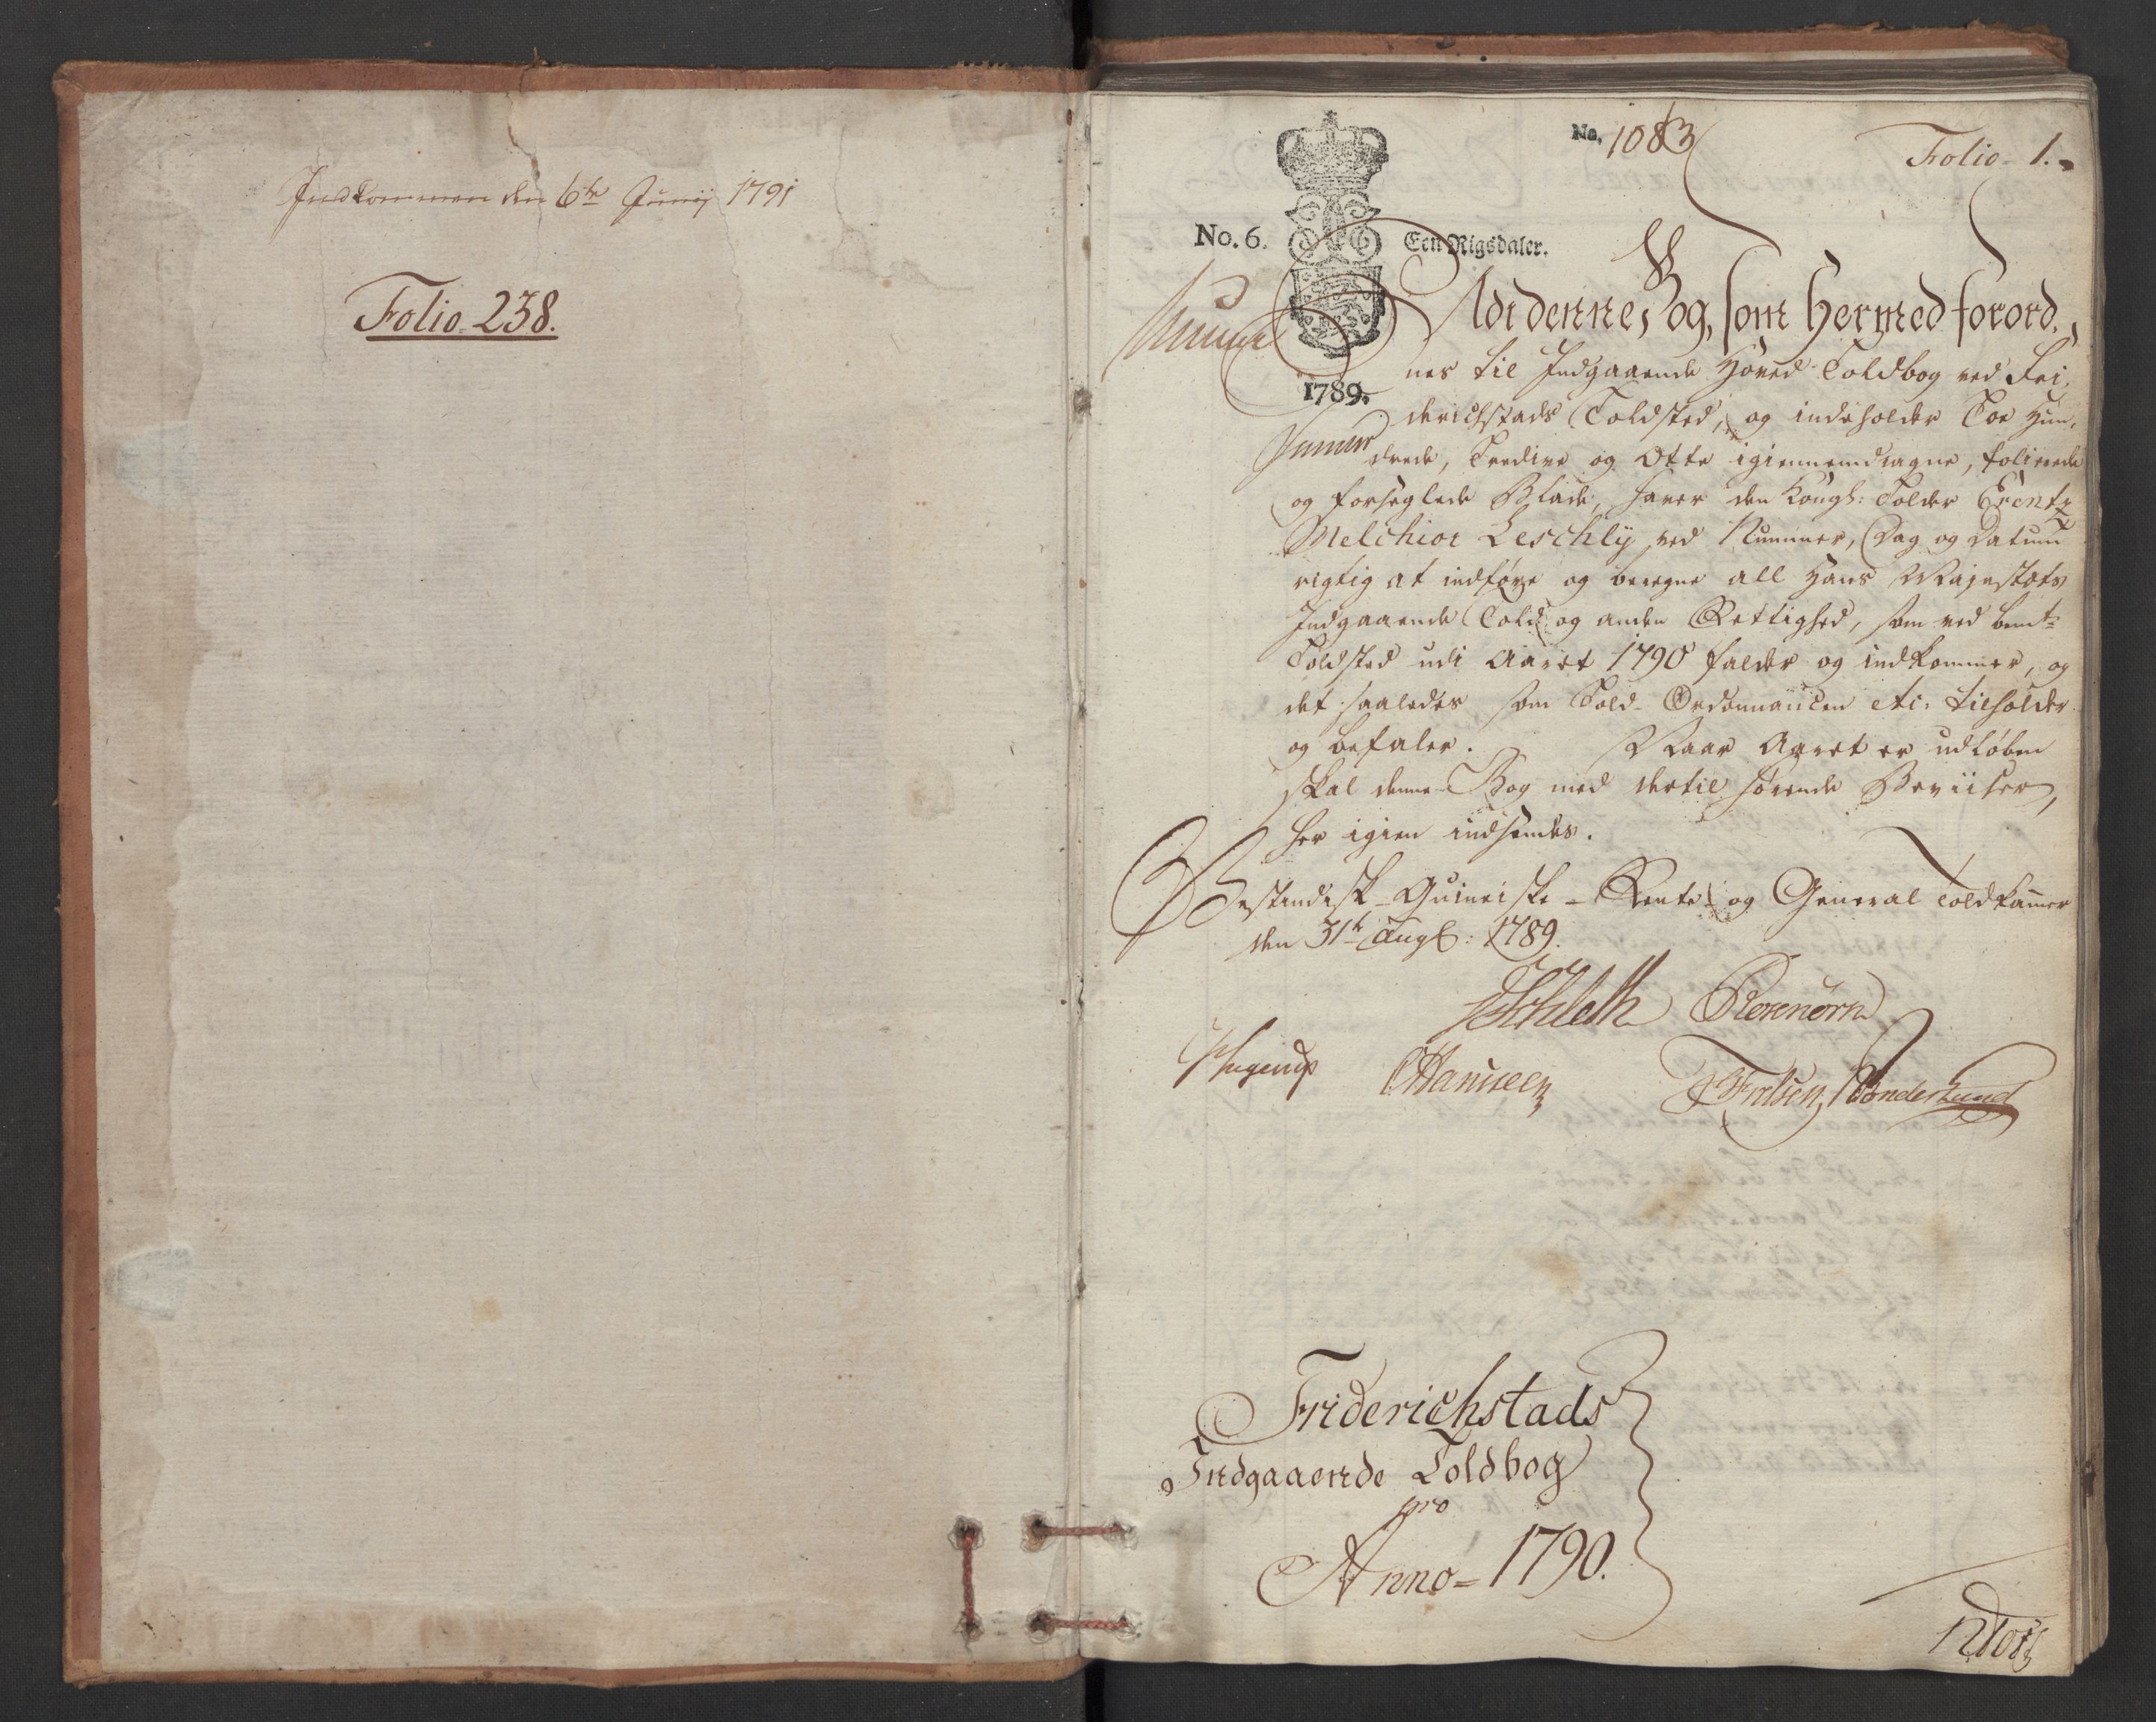 Indkommen den 6te Junij 1791
Folio 238.
No. 1083
Folio 1.
No. 6.
Een Rigsdaler.
1789.
Udi denne Bog, som hermed forord,
nes til Indgaaende Hoved Toldbog ved Fri,
derichstads Toldsted, og indeholder Toe Hun,
drede, Tredive og Otte igiennemdragne, folierede
og forseglede Blade, haver den Kongl: Tolder Erentz
Melchior Leschly ved Nummer, Dag og Datum
rigtig at indføre og beregne all Hans Majestæts
Indgaaende Told og anden Rettighed, som ved bemte
Toldsted udi Aaret 1790 falder og indkommer, og
det saaledes som Told-Ordonnancen etc: tilholder
og befaler. Naar Aaret er udløben
skal denne Bog med dertil hørende Beviiser,
her igien indsendes.
Vestindisk-Guineiske-Rente- og General Toldkamer
den 31te Augs: 1789.
Schleth Rosenørn
Hansen
Friderichstads
Indgaaende Toldbog
pro
Anno 1790.